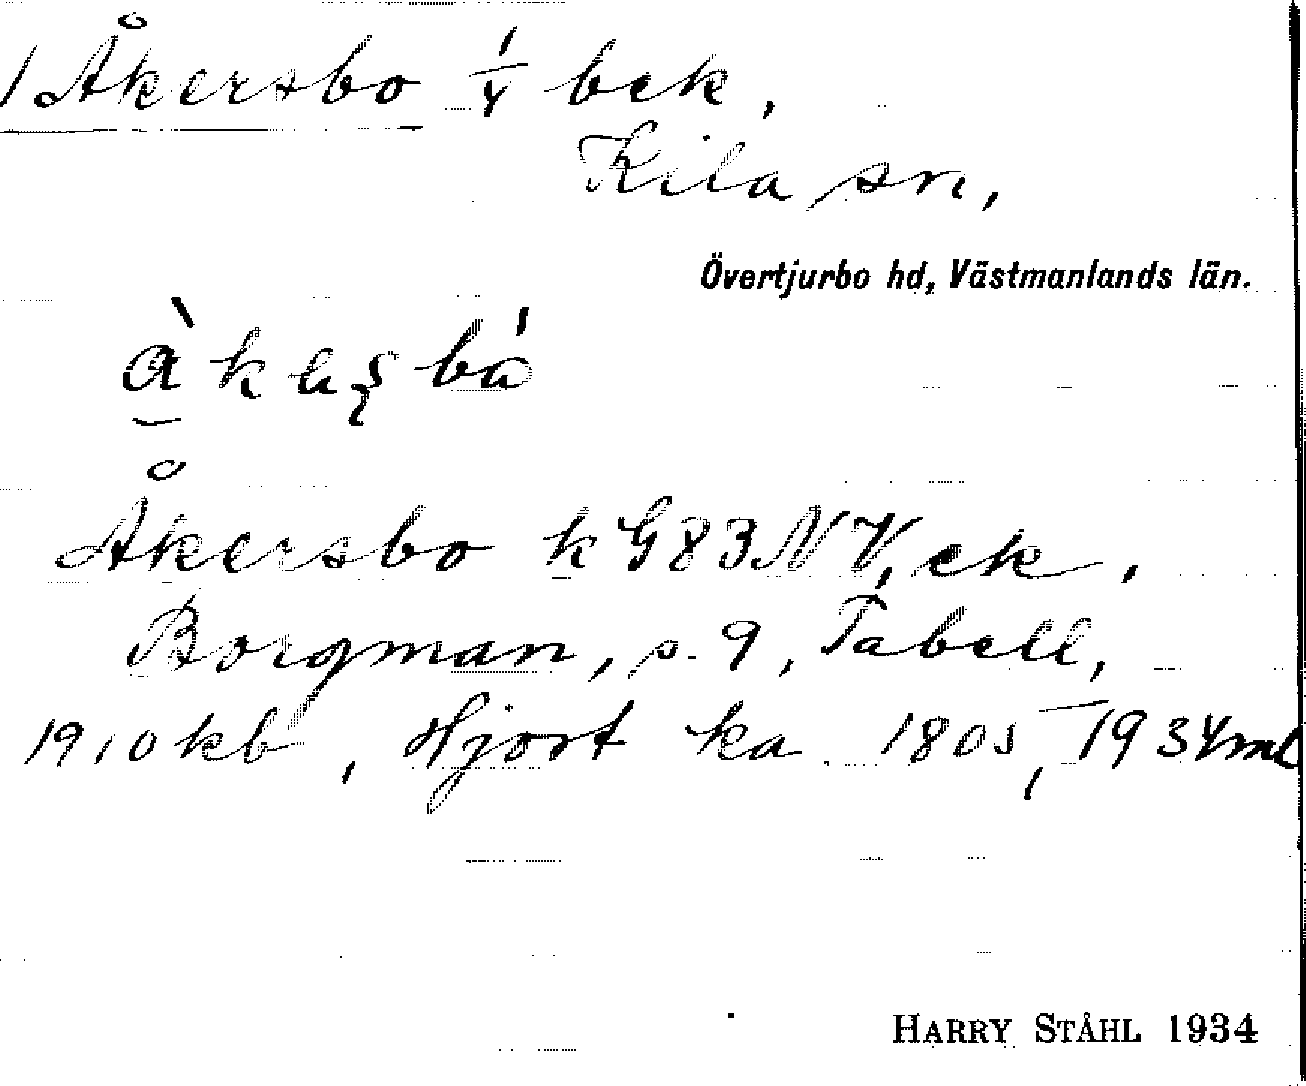 1 Åkersbo 1/4 bek,
Kila sn,
Övertjurbo hd, Västmanlands län.
Åkersbo k G83NV, ek,
Borgman, s. 9, Tabell,
1910 kb, Hjort ka 1805, 1934 ml
HARRY STÅHL 1934